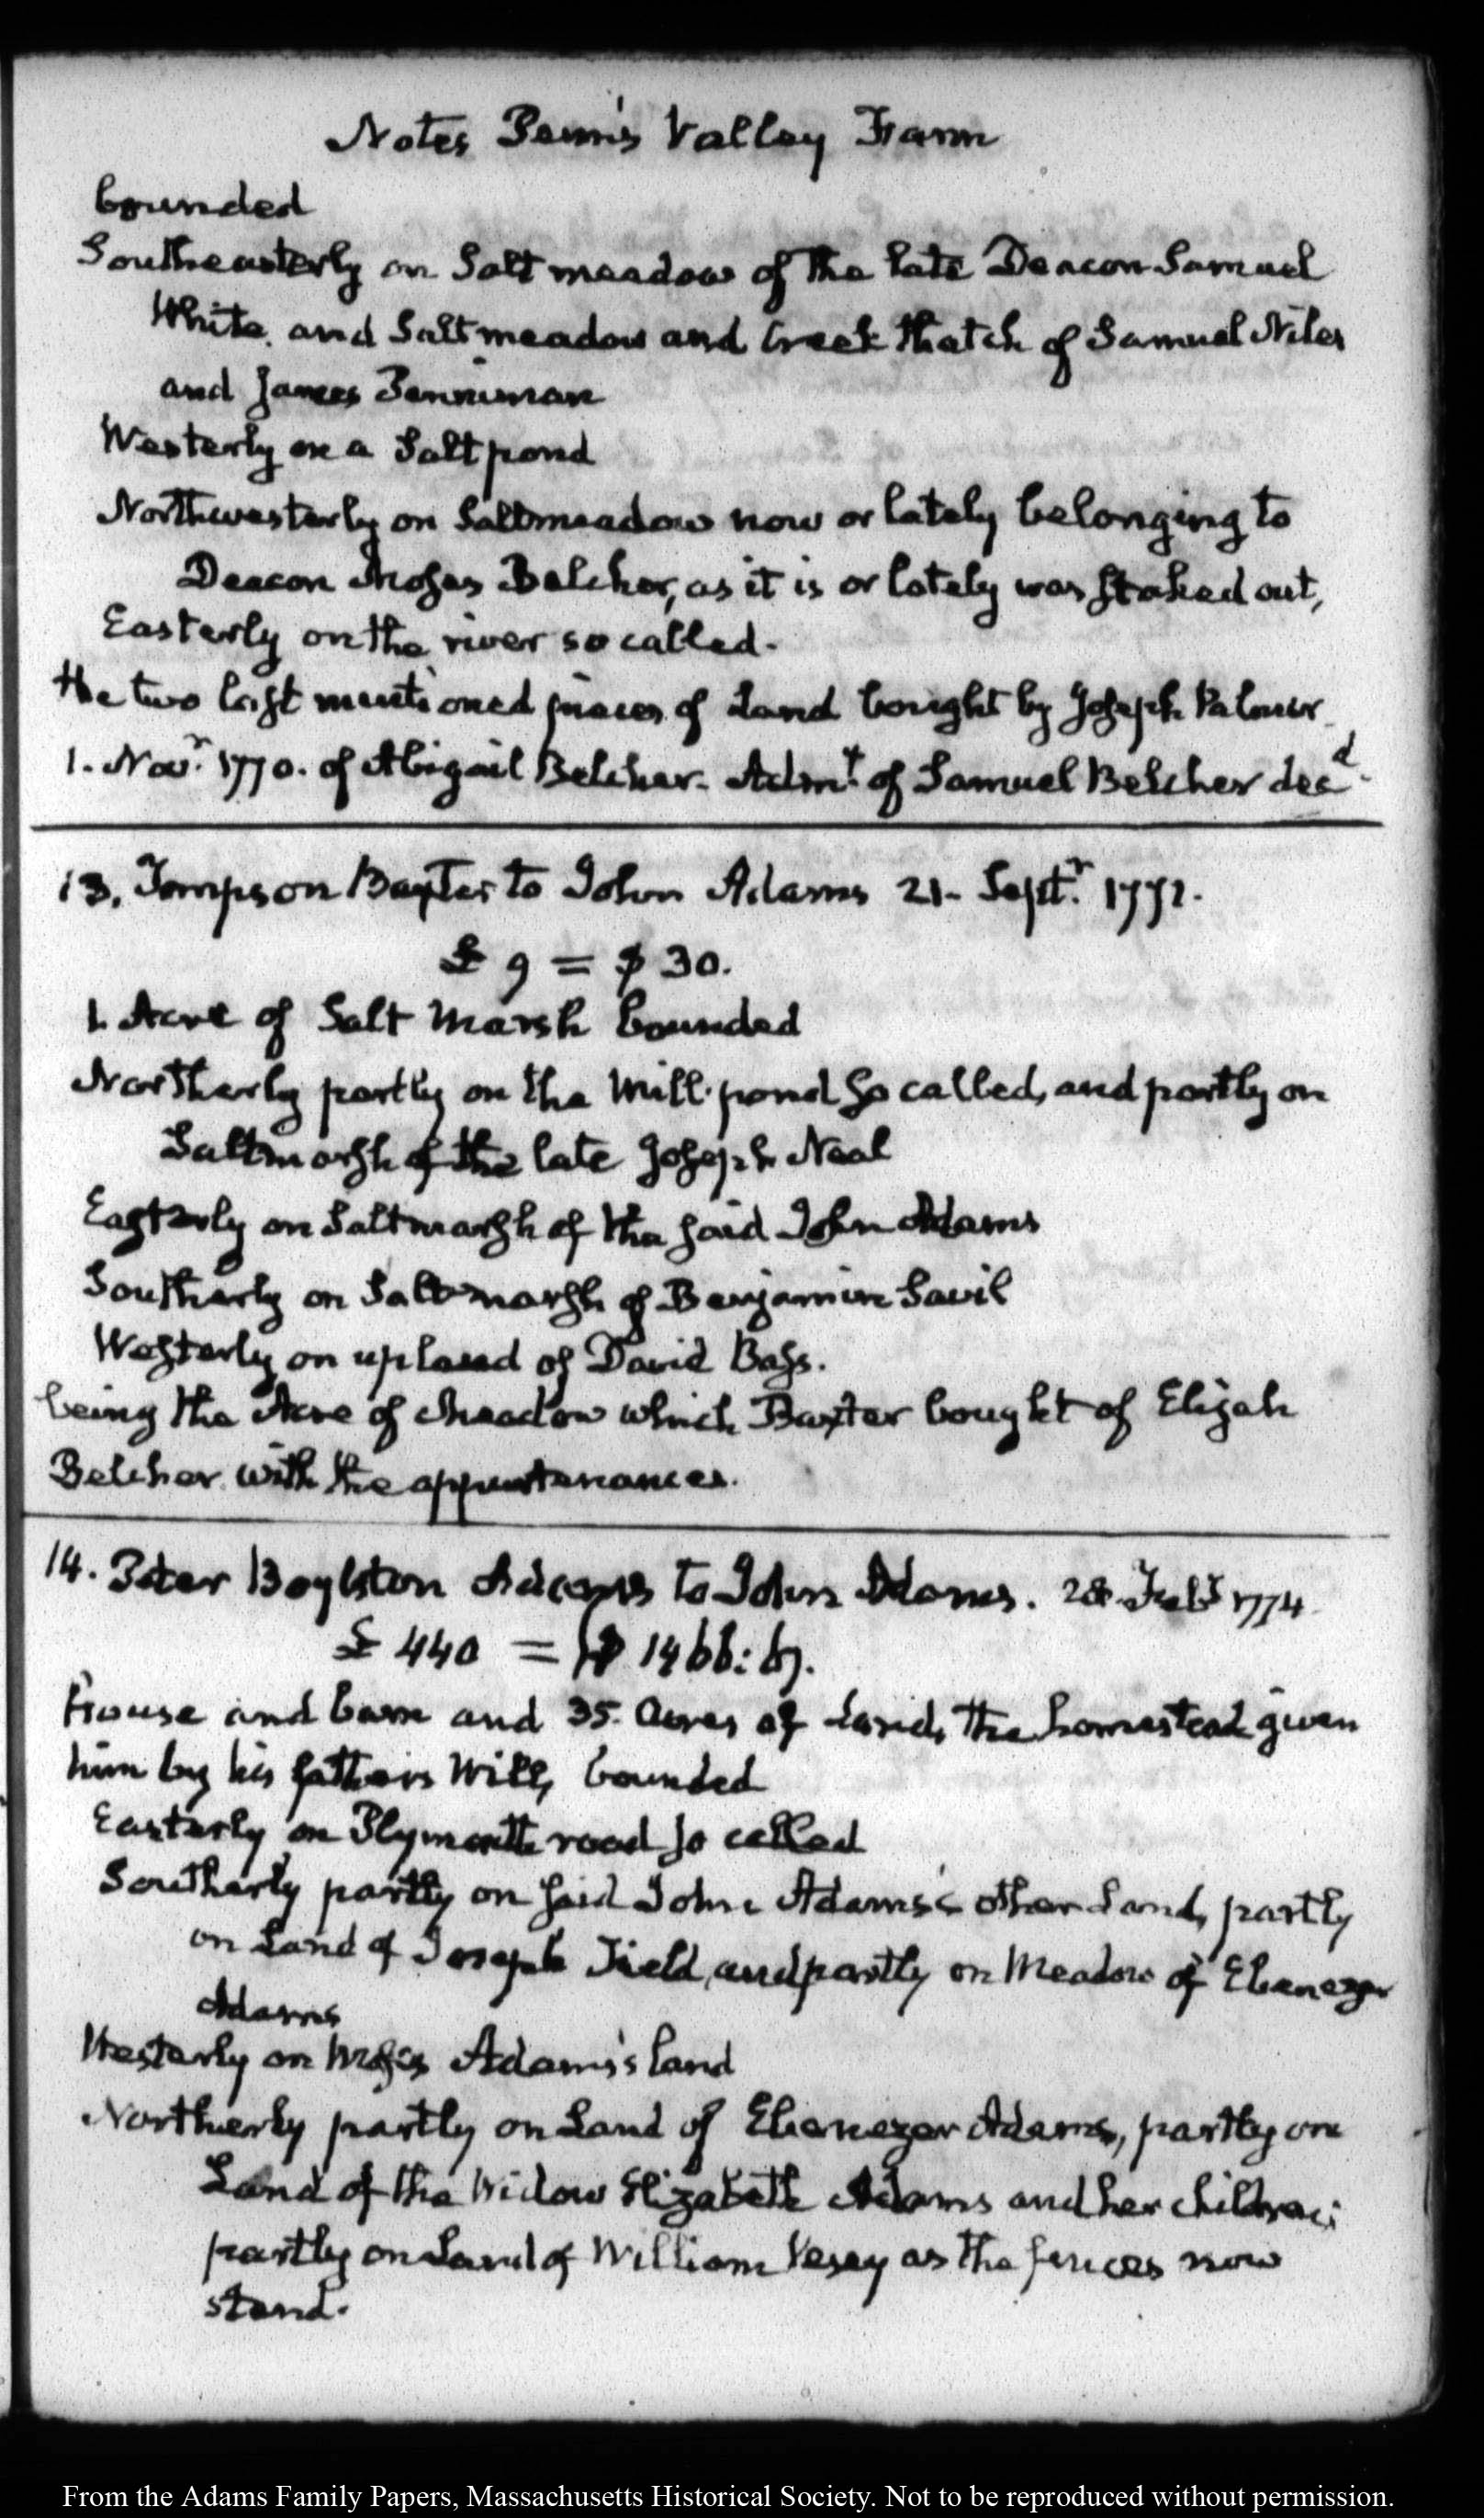 Notes Penn's Valley Farm
bounded
Southeasterly on Salt meadow of the late Deacon Samuel
White, and Salt meadow and Creek thatch of Samuel Niles
and James Penniman
Westerly on a Salt pond
Northwesterly on Saltmeadow now or lately belonging to
Deacon Moses Belcher, as it is or lately was staked out,
Easterly on the river so called.
the two last mentioned pieces of Land bought by Joseph Palmer
1. Novr. 1770. of Abigail Belcher. Admt. of Samuel Belcher decd.
13. Tompson Baxter to John Adams 21. Septr. 1772.
£ 9 = $ 30.
1. Acre of Salt Marsh bounded
Northerly partly on the Mill-pond so called, and partly on
Saltmarsh of the late Joseph Neal
Easterly on Saltmarsh of the said John Adams
Southerly on Saltmarsh of Benjamin Savil
Westerly on upland of David Bass.
being the Acre of Meadow which Baxter bought of Elijah
Belcher with the appurtenances.
14. Peter Boylston Adams to John Adams. 28 Feby 1774
£ 440 = $ 1466:67.
House and barn and 35. Acres of Land, the homestead given
him by his fathers Will, bounded
Easterly on Plymouth road so called
Southerly partly on said John Adams's other Land, partly
on Land of Joseph Field, and partly on Meadow of Ebenezer
Adams
Westerly on Moses Adams's land
Northerly partly on Land of Ebenezer Adams, partly on
Land of the Widow Elizabeth Adams and her children;
partly on Land of William Vesey as the fences now
stand.
From the Adams Family Papers, Massachusetts Historical Society. Not to be reproduced without permission.